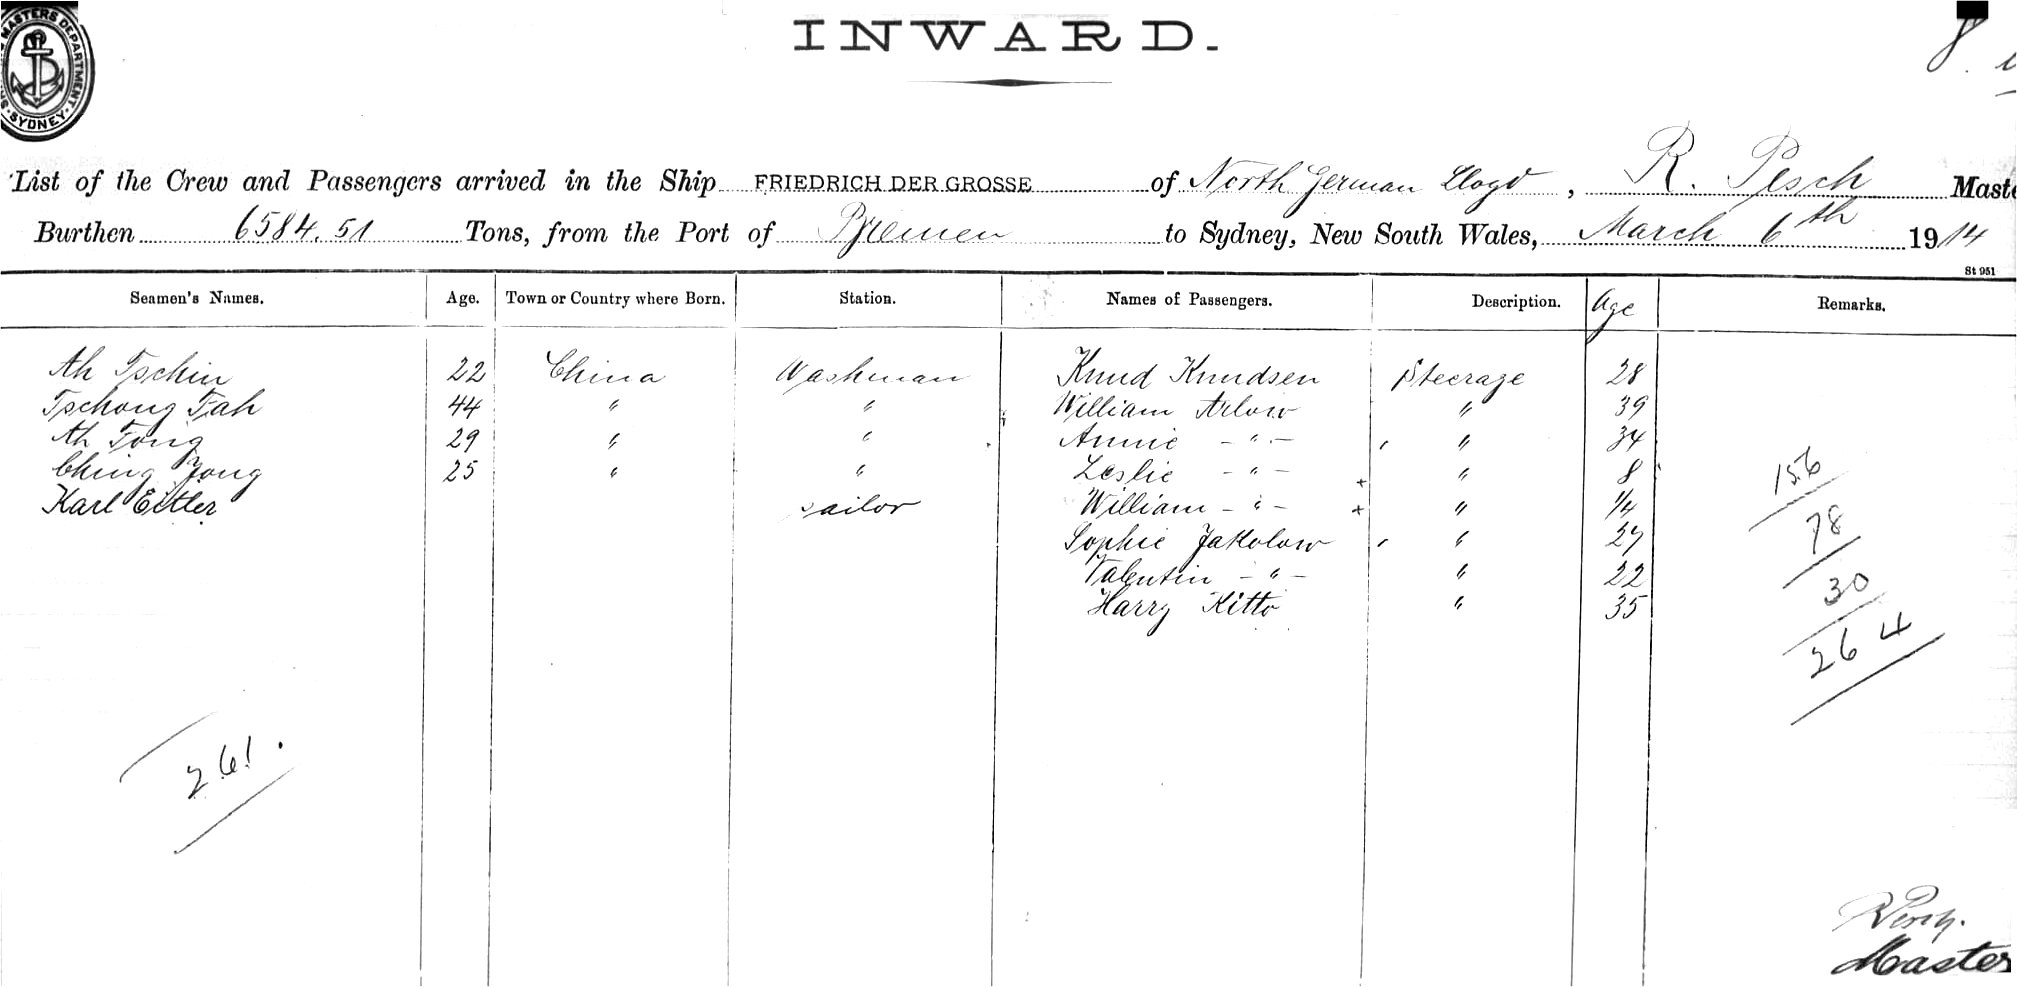 INWARD.
8
MASTERS DEPARTMENT
SYDNEY
List of the Crew and Passengers arrived in the Ship FRIEDRICH DER GROSSE of North German Lloyd, R. Pesch Maste
Burthen 6584.51 Tons, from the Port of Bremen to Sydney, New South Wales, March 6th 1914
St 951
Seamen's Names. Age. Town or Country where Born. Station. Names of Passengers. Description. Age Remarks.
Ah Tschin 22 China Washman Knud Knudsen Steerage 28
Tschong Fah 44 " " William Arlow " 39
Ah Tong 29 " " Annie - " - " 34
Ching Yong 25 " " Leslie - " - + " 8
Karl Eitler sailor William - " - + " 1/4
Sophie Jakolow " 27
Valentin - " - " 22
Harry Kitto " 35
156
78
30
264
261.
R Pesch.
Master